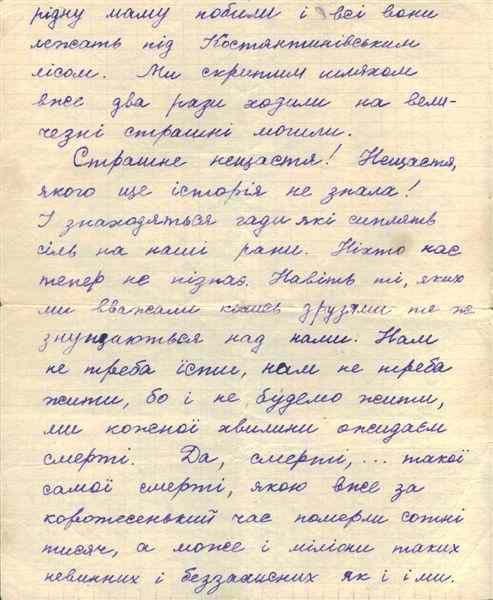 рідну маму побили і всі вони
лежать під Костянтинівським
лісом. Ми скритим шляхом
вже два рази ходили на вели-
чезні страшні могили.
Страшне нещастя! Нещастя,
якого ще історія не знала!
І знаходяться гади які сиплять
сіль на наші рани. Ніхто нас
тепер не пізнає. Навіть ті, яких
ми вважали колись друзями теж
знущаються над нами. Нам
не треба їсти, нам не треба
жити, бо і не будемо жити,
ми кожної хвилини ожидаєм
смерті. Да, смерті, ... такої
самої смерті, якою вже за
коротесенький час померли сотні
тисяч, а може і міліони таких
невинних і беззахисних як і ми.